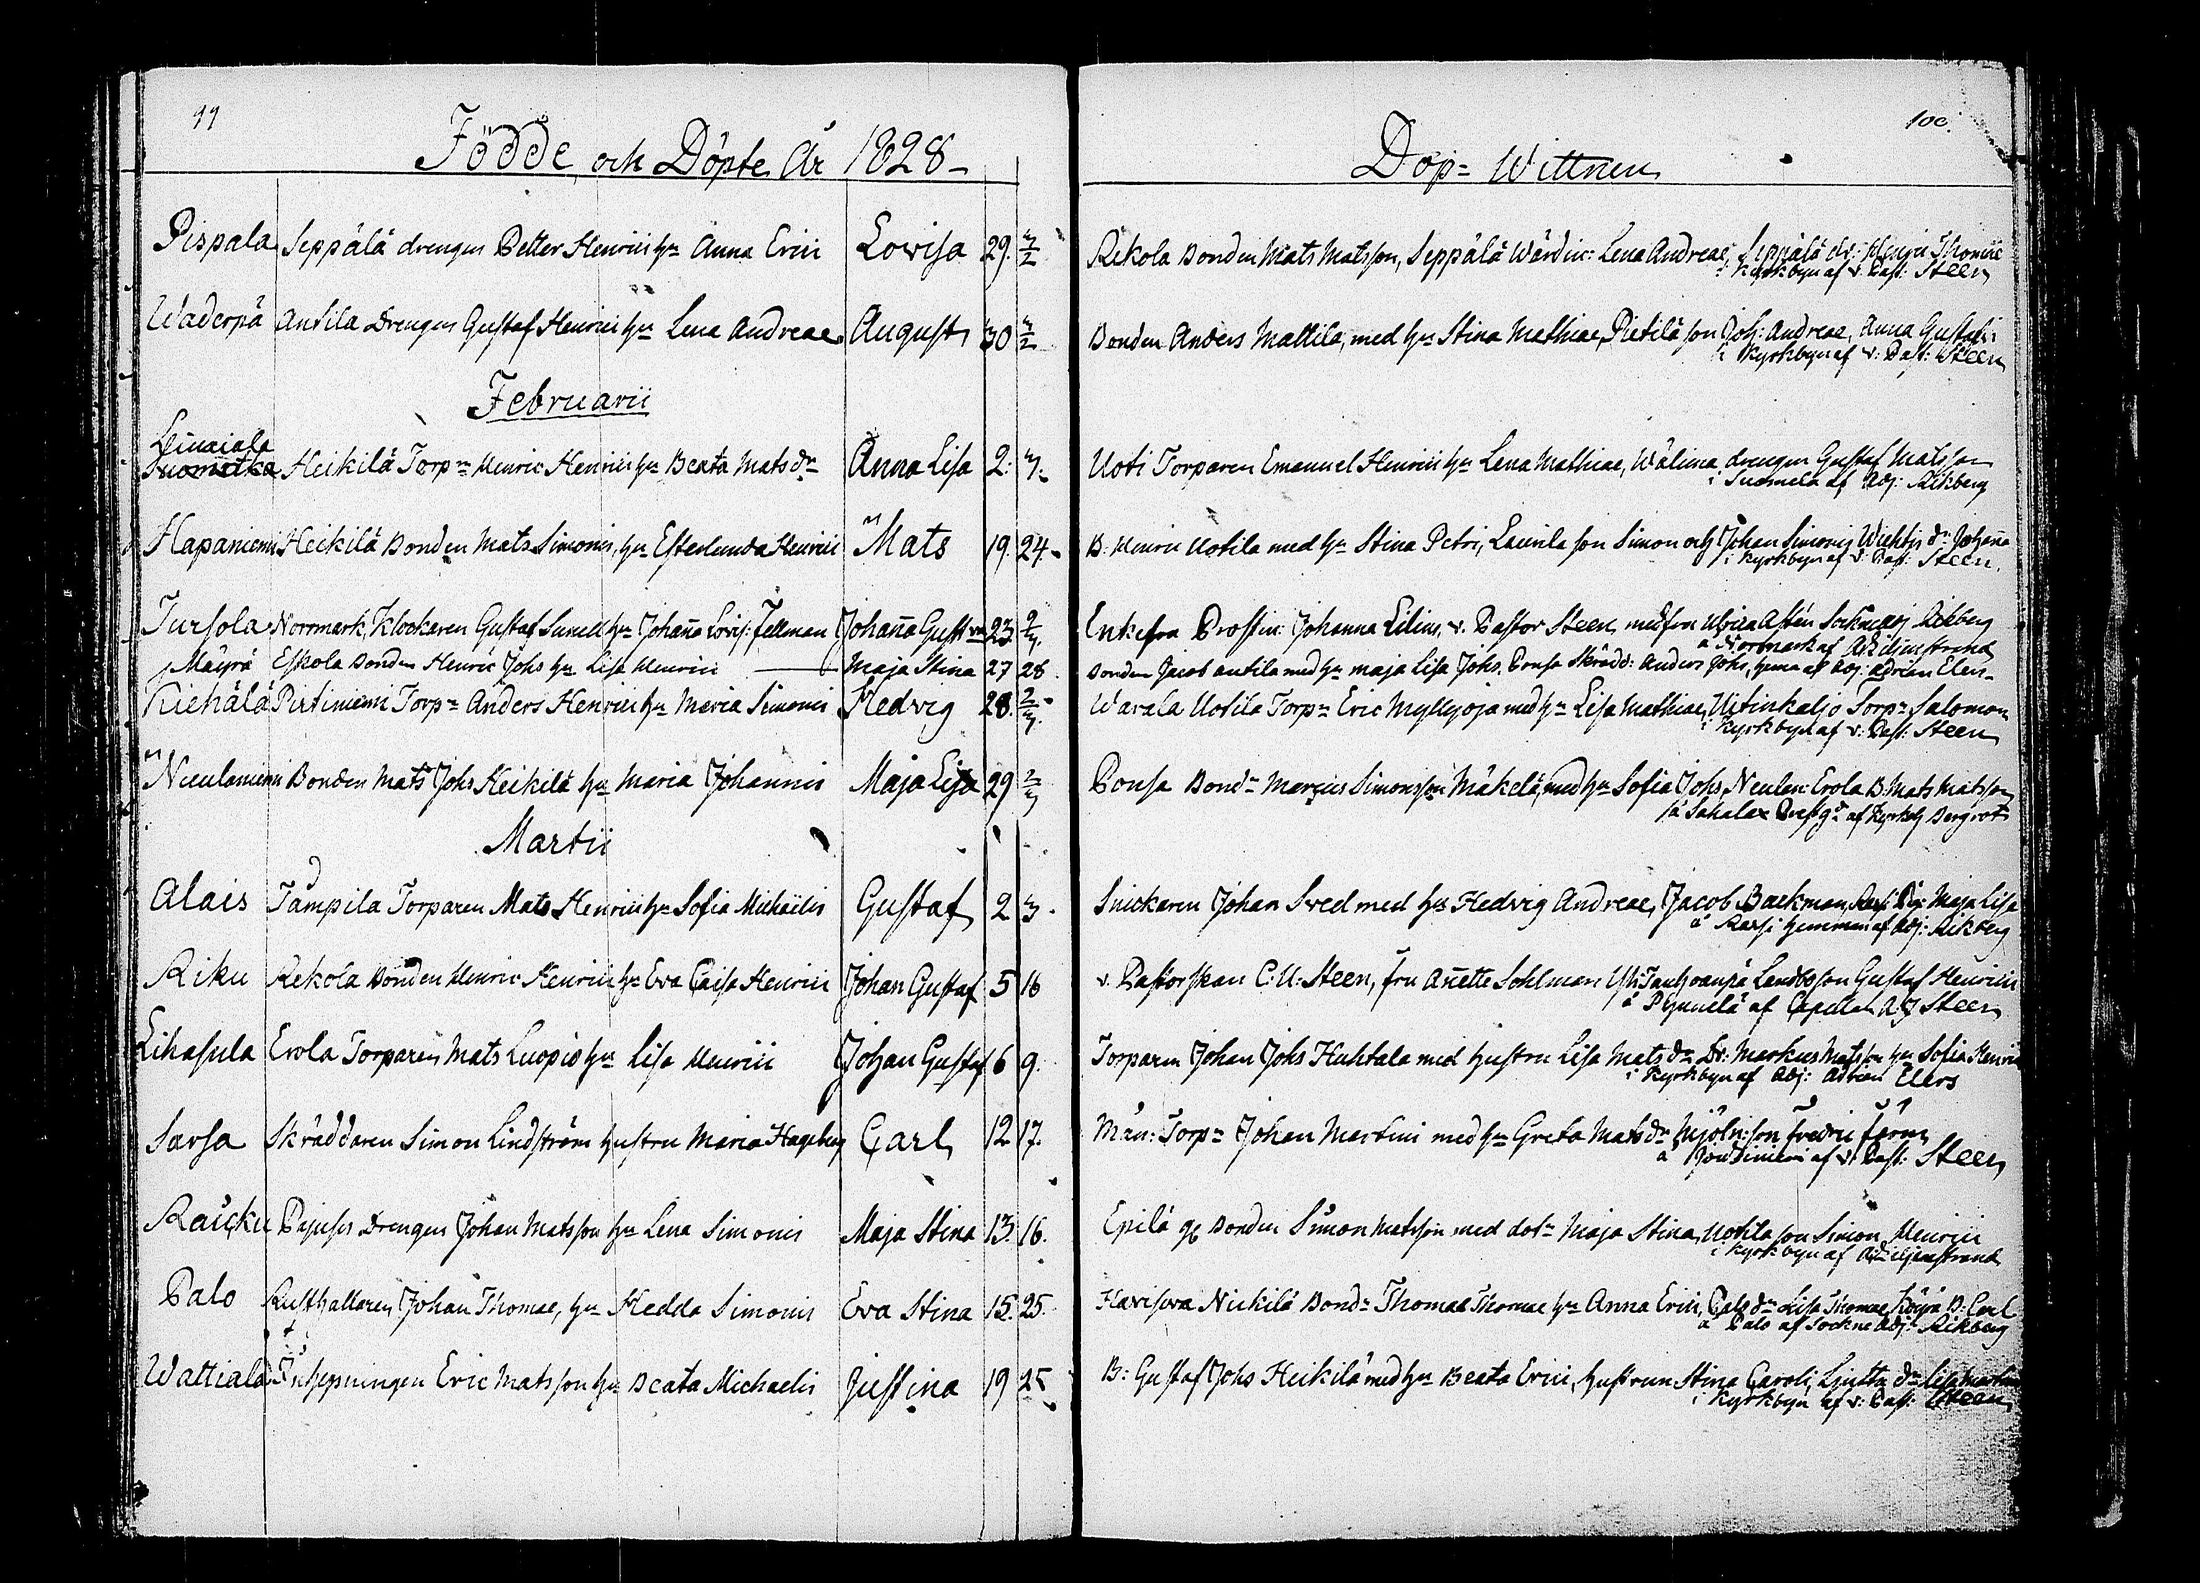 99
Födde och Döpte År 1828
Pispala Seppälä drengen Petter Henrici hu Anna Erici Lovisa 29. 3/2
Wäderpä Antila Drengen Gustaf Henrici hu Lena Andreae August 30 3/2
Februarii
Liuxiala
Suomatka Heikilä Torpn Henric Henrici hu Beata Matsdr Anna Lisa 2. 3.
Hapaniemi Heikilä Bonden Mats Simonis, hu Esterlunda Henrici Mats 19. 24.
Tursola Norrmark, Klockaren Gustaf Sunell hu Johaña Lovis: Fellman Johaña Gust 23. 2/3.
Mäyrä Eskola Bonden Henric Johs hu Lisa Henrici Maja Stina 27 28
Kiehälä Pirtiniemi Torpn Anders Henrici hu Maria Simonis Hedvig 28. 2/3.
Neulaniemi Bonden Mats Johs Heikilä hu Maria Johannis Maja Lisa 29 2/3
Martii
Alais Tämpila Torparen Mats Henrici hu Sofia Michaelis Gustaf 2 3.
Riku Rekola Bonden Henric Henrici hu Eva Caisa Henrici Johan Gustaf 5 16
Lihasula Erola Torparen Mats Luopio hu Lisa Henrici Johan Gustaf 6 9.
Sarsa Skräddaren Simon Lindström hustru Maria Hagberg Carl 12 17.
Raicku Drengen Johan Matsson hu Lena Simonis Maja Stina 13. 16.
Palo Rusthallaren Johan Thomae, hu Hedda Simonis Eva Stina 15. 25.
Wattiala Inhysningen Eric Matsson hu Beata Michaelis Justina 19 25
100.
Dop= Wittnen
Rekola Bonden Mats Matsson, Seppälä Wärdin: Lena Andreae, Seppälä dr: Henric Thomae
i Kyrkbyn af v: Past: Steen
Bonden Anders Mattila, med hu Stina Mathiae, Pietilä son Joh: Andreae, Anna Gustafs
i Kyrkbyn af v: Past: Steen
Uoti Torparen Emanuel Henrici hu Lena Mathiae, Wälima drengen Gustaf Matsson
i Suomela af Adj: Rikberg
B: Henric Uotila med hu Stina Petri, Laurila son Simon och Johan Simonis dr Johaña
i Kyrkbyn af v: Past: Steen.
Enkefru Prostin: Johanna Lilius, v. Pastor Steen med fru Ulrica Astén Socknadj Rikberg
å Norrmark af Liljenstrand
Bonden Jacob Antila med hu Maja Lisa Johs. Ponsa Skrädd: Anders Johs, hema af Adj: Adrian Elers
Warala Uotila Torpn Eric Myllyoja med hu Lisa Mathiae, Torpn Salomon
i Kyrkbyn af v: Past: Steen
Ponsa Bondn Marcus Simonsson Mäkelä, med hu Sofia Johs, Neulan: Erola B. Mats Matsson
på Sahalax Prestgd af Kyrkoh Bergroth
Snickaren Johan Sved med hu Hedvig Andreae, Jacob Backman, Maja Lisa
å Rassi hemman af Adj: Rikberg
v. Pastorskan C: U: Steen, fru Añette Sohlman Landbosson Gustaf Henrici
å af Capellan Steen
Torparen Johan Johs Huhtala med hustru Lisa Matsdr Dr: Markus Matsson hu Sofia Henrici
i Kyrkbyn af Adj: Adrian Elers
Män: Torpn Johan Martini med hu Greta Matsdr Mjöln:son Fredric Färm
å af v: Past: Steen
Epilä Bonden Simon Matsson med dotn Maja Stina, Uotila son Simon Henrici
i Kyrkbyn af Liljenstrand
Havisova Nickilä Bondn Thomas Thomae hu Anna Erici, Palo dr Lisa Thomae, B: Carl
å Palo af Sockne Adj: Rikberg
B: Gustaf Johs Heikilä med hu Beata Erici, hustrun Stina Caroli, dr Lisa
i Kyrkbyn af v: Past: Steen